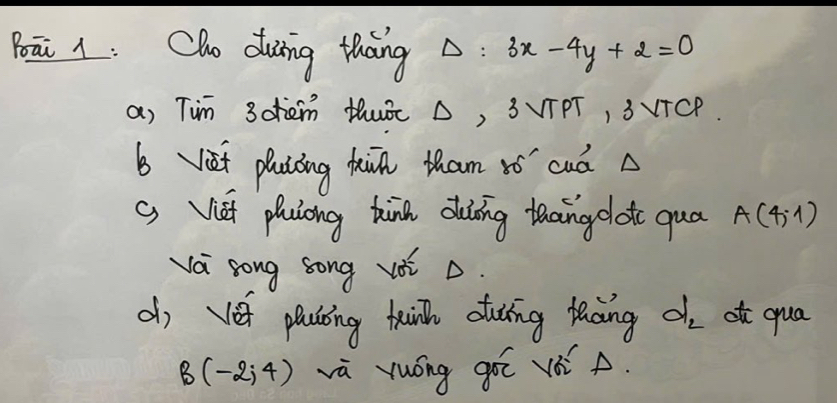 Bài 1 : Cho đường thẳng Δ : 3x - 4y + 2 = 0
a, Tìm 3 điểm thuộc Δ , 3 VTPT , 3 VTCP .
b Viết phương trình tham số của Δ
c, Viết phương trình đường thẳng d đi qua A(4;1)
và song song với Δ .
d, Viết phương trình đường thẳng d₂ đi qua
B(-2;4) và vuông góc với Δ .